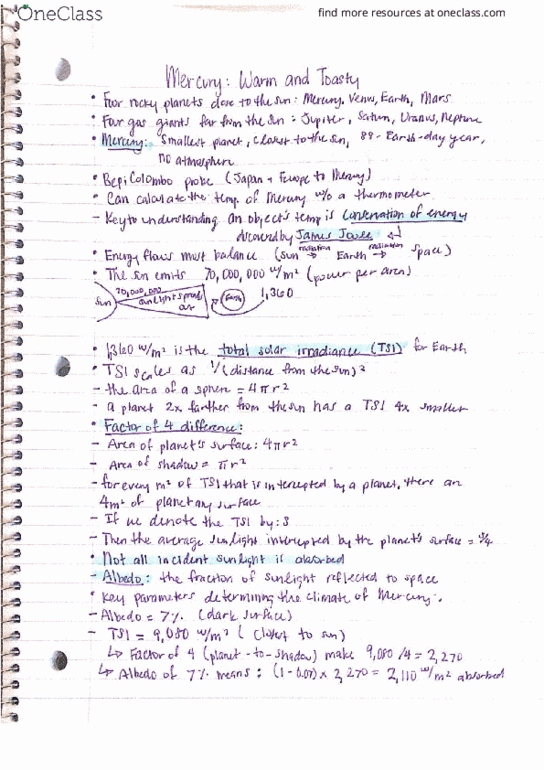 OneClass
find more resources at oneclass.com
Mercury: Warm and Toasty
• Four rocky planets close to the sun: Mercury, Venus, Earth, Mars
• Four gas giants far from the sun: Jupiter, Saturn, Uranus, Neptune
• Mercury: Smallest planet, closest to the sun, 88-Earth-day year,
no atmosphere
• Bepi Colombo probe (Japan + Europe to Mercury)
• Can calculate the temp of Mercury w/o a thermometer
- Key to understanding an object's temp is conservation of energy
discovered by James Joule
• Energy flows must balance (sun radiation → Earth radiation → space)
• The sun emits 70,000,000 w/m² (power per area)
Sun 70,000,000 sunlight spreads out Earth 1,360
• 1,360 w/m² is the total solar irradiance (TSI) for Earth
• TSI scales as 1/(distance from the sun)²
- the area of a sphere = 4πr²
- a planet 2x farther from the sun has a TSI 4x smaller
• Factor of 4 difference:
- Area of planet's surface: 4πr²
- Area of shadow = πr²
- for every m² of TSI that is intercepted by a planet, there are
4m² of planetary surface
- If we denote the TSI by: S
- Then the average sunlight intercepted by the planet's surface = S/4
• Not all incident sunlight is absorbed
- Albedo: the fraction of sunlight reflected to space
• Key parameters determining the climate of Mercury:
- Albedo = 7% (dark surface)
- TSI = 9,080 w/m² (closest to sun)
↳ Factor of 4 (planet-to-shadow) make 9,080/4 = 2,270
↳ Albedo of 7% means: (1-0.07) x 2,270 = 2,110 w/m² absorbed